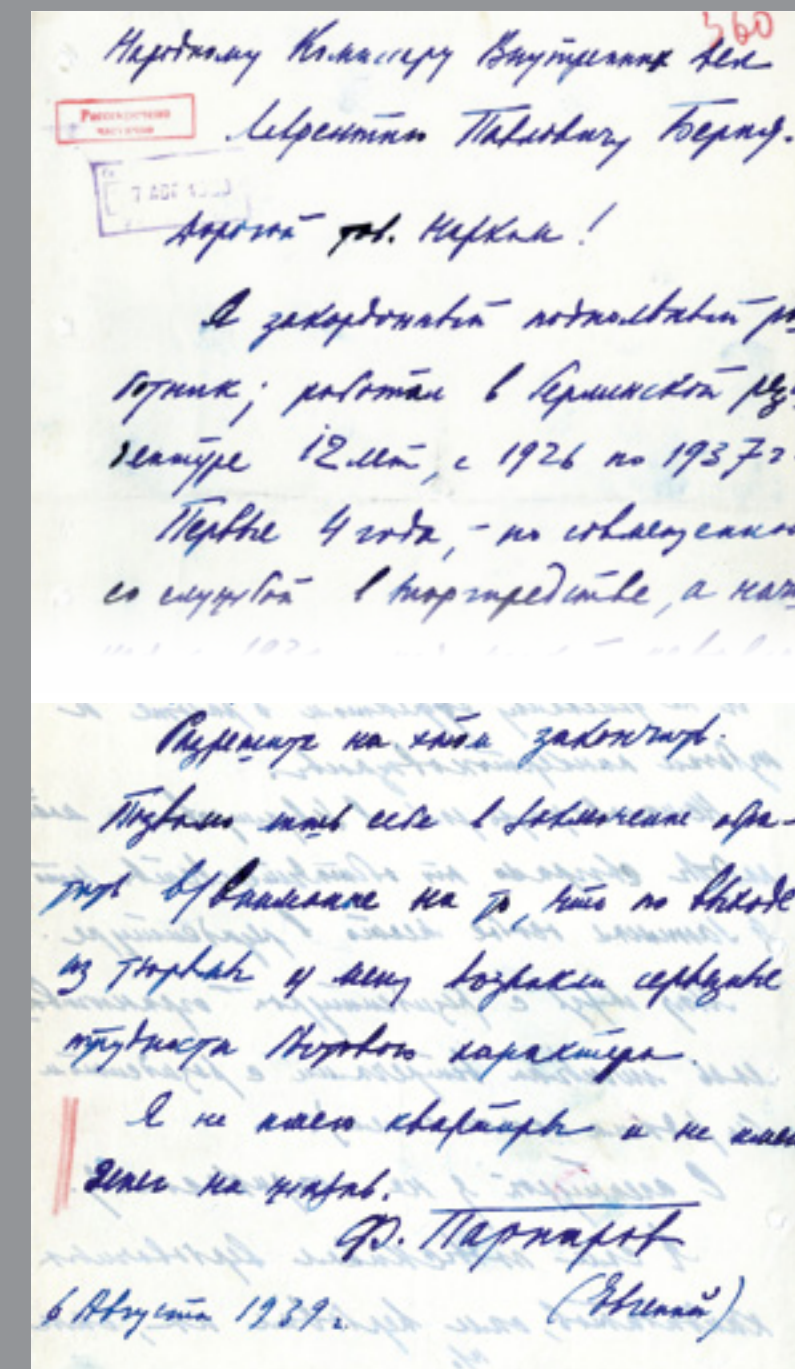 360
Народному Комиссару Внутренних дел
Рассекречено
частично
Лаврентию Павловичу Берия.
7 АВГ 1939
Дорогой тов. Нарком!
Я закордонный подпольный ра
ботник; работал в берлинской рези
дентуре 12 лет, с 1926 по 1937 г
Первые 4 года, – по совмещению
со службой в торгпредстве, а нач
Разрешите на этом закончить.
Позволю себе в заключение обра-
тить В/внимание на то, что по выходе
из тюрьмы у меня возникли серьезные
трудности бытового характера.
Я не имею квартиры и не имею
денег на
Ф. Парпаров
6 Августа 1939 г. (Евгений)